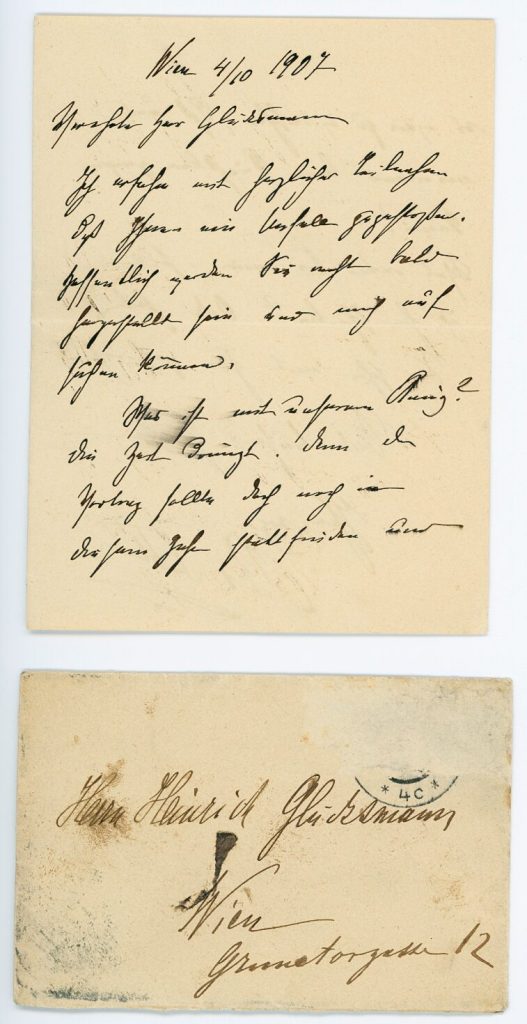 Wien 4/10 1907
Verehrter Herr Glücksmann
Ich erfahre mit herzlicher Teilnahme
daß Ihnen ein Unfall zugestoßen.
Hoffentlich werden Sie recht bald
hergestellt sein und mich auf
suchen können.
Was ist mit unserem ?
die Zeit drängt. denn der
Vortrag sollte doch noch in
diesem Jahr stattfinden und
* 4C *
Herrn Heinrich Glücksmann
Wien
Grünetorgasse 12